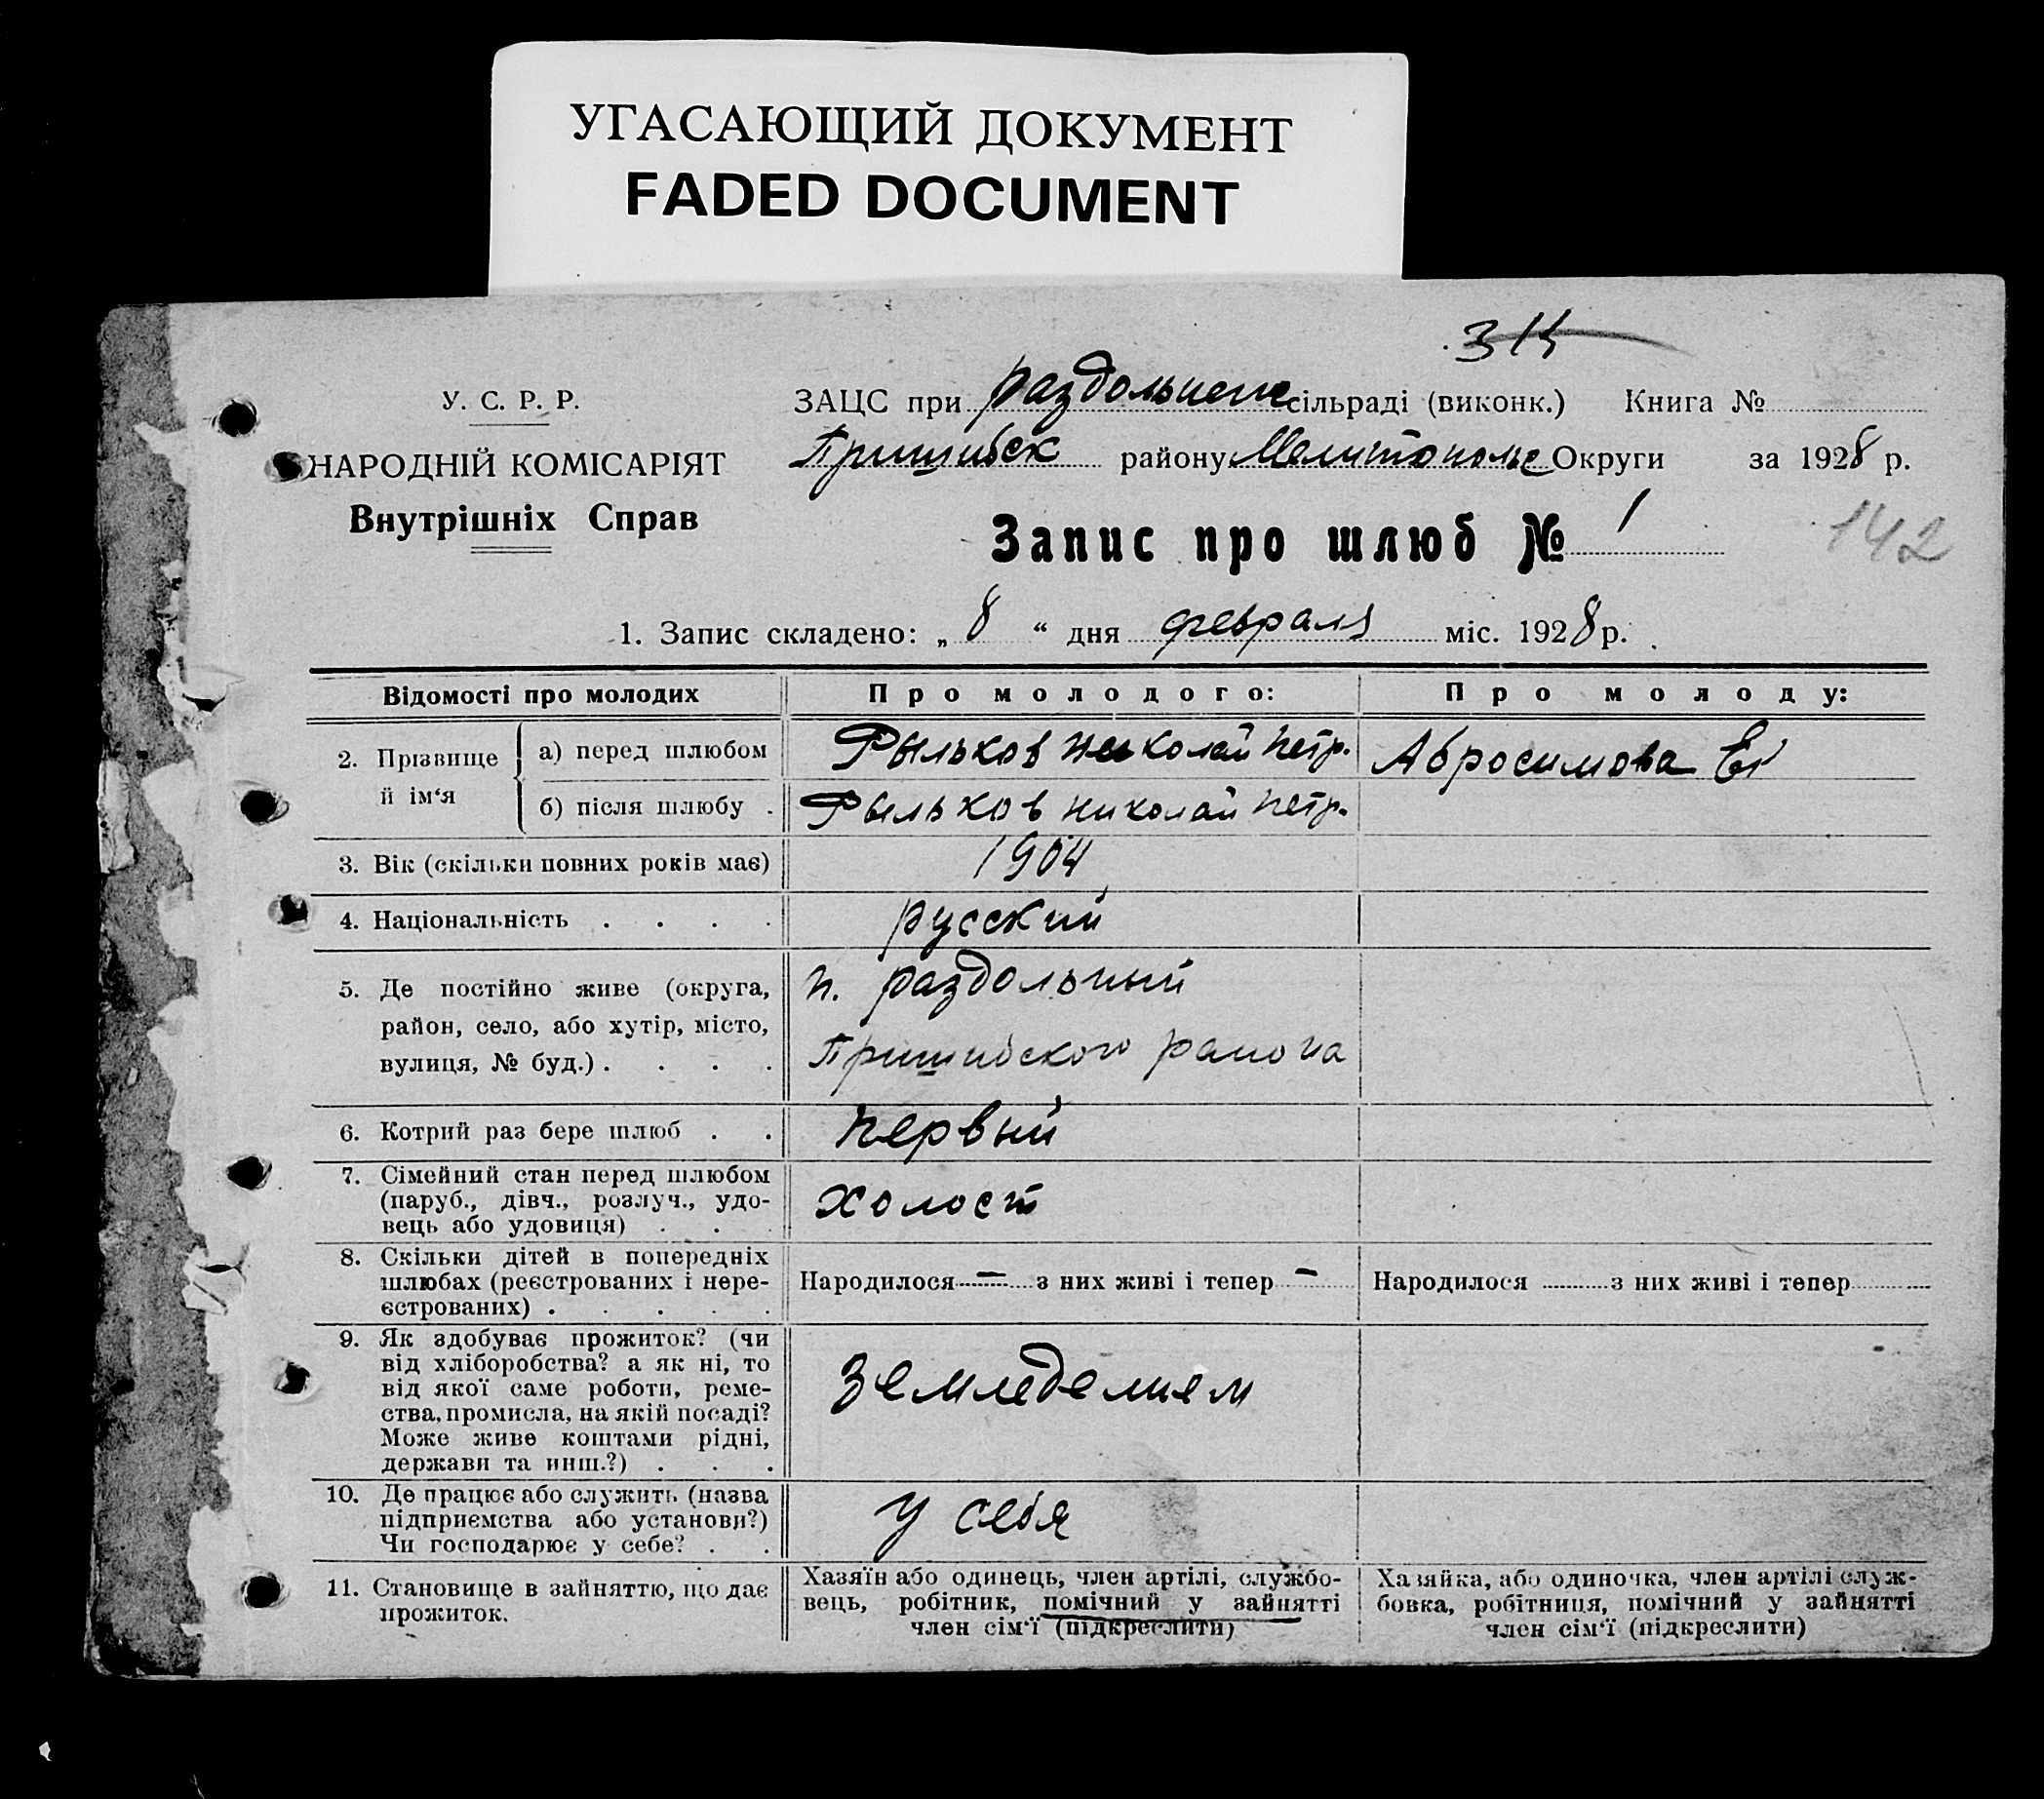 УГАСАЮЩИЙ ДОКУМЕНТ
FADED DOCUMENT
314
У. С. Р. Р.
НАРОДНІЙ КОМІСАРІЯТ
Внутрішніх Справ
ЗАЦС при раздольнем сільраді (виконк.) Книга №
Пришибск району Мелитополье Округи за 1928 р.
Запис про шлюб № 1
142
1. Запис складено: „ 8 “ дня февраля міс. 1928 р.
Відомості про молодих
Про молодого:
Про молоду:
2. Прізвище й ім‘я
а) перед шлюбом
Рыльков николай петр.
Абросимова
б) після шлюбу .
Рыльков николай петр.
3. Вік (скільки повних років має)
1904
4. Національність . . . .
русский
5. Де постійно живе (округа,
район, село, або хутір, місто,
вулиця, № буд.) . . . .
п. раздольный
Пришибского раиона
6. Котрий раз бере шлюб . .
первый
7. Сімейний стан перед шлюбом
(паруб., дівч., розлуч., удо-
вець або удовиця) . . .
холост
8. Скільки дітей в попередніх
шлюбах (реєстрованих і нере-
єстрованих) . . . . .
Народилося — з них живі і тепер —
Народилося з них живі і тепер
9. Як здобуває прожиток? (чи
від хліборобства? а як ні, то
від якої саме роботи, реме-
ства, промисла, на якій посаді?
Може живе коштами рідні,
держави та инш.?) . . .
земледелием
10. Де працює або служить (назва
підприємства або установи?)
Чи господарює у себе? . .
у себя
11. Становище в зайняттю, що дає
прожиток.
Хазяїн або одинець, член артілі, службо-
вець, робітник, помічний у зайнятті
член сім‘ї (підкреслити)
Хазяйка, або одиночка, член артілі служ-
бовка, робітниця, помічний у зайнятті
член сім‘ї (підкреслити)